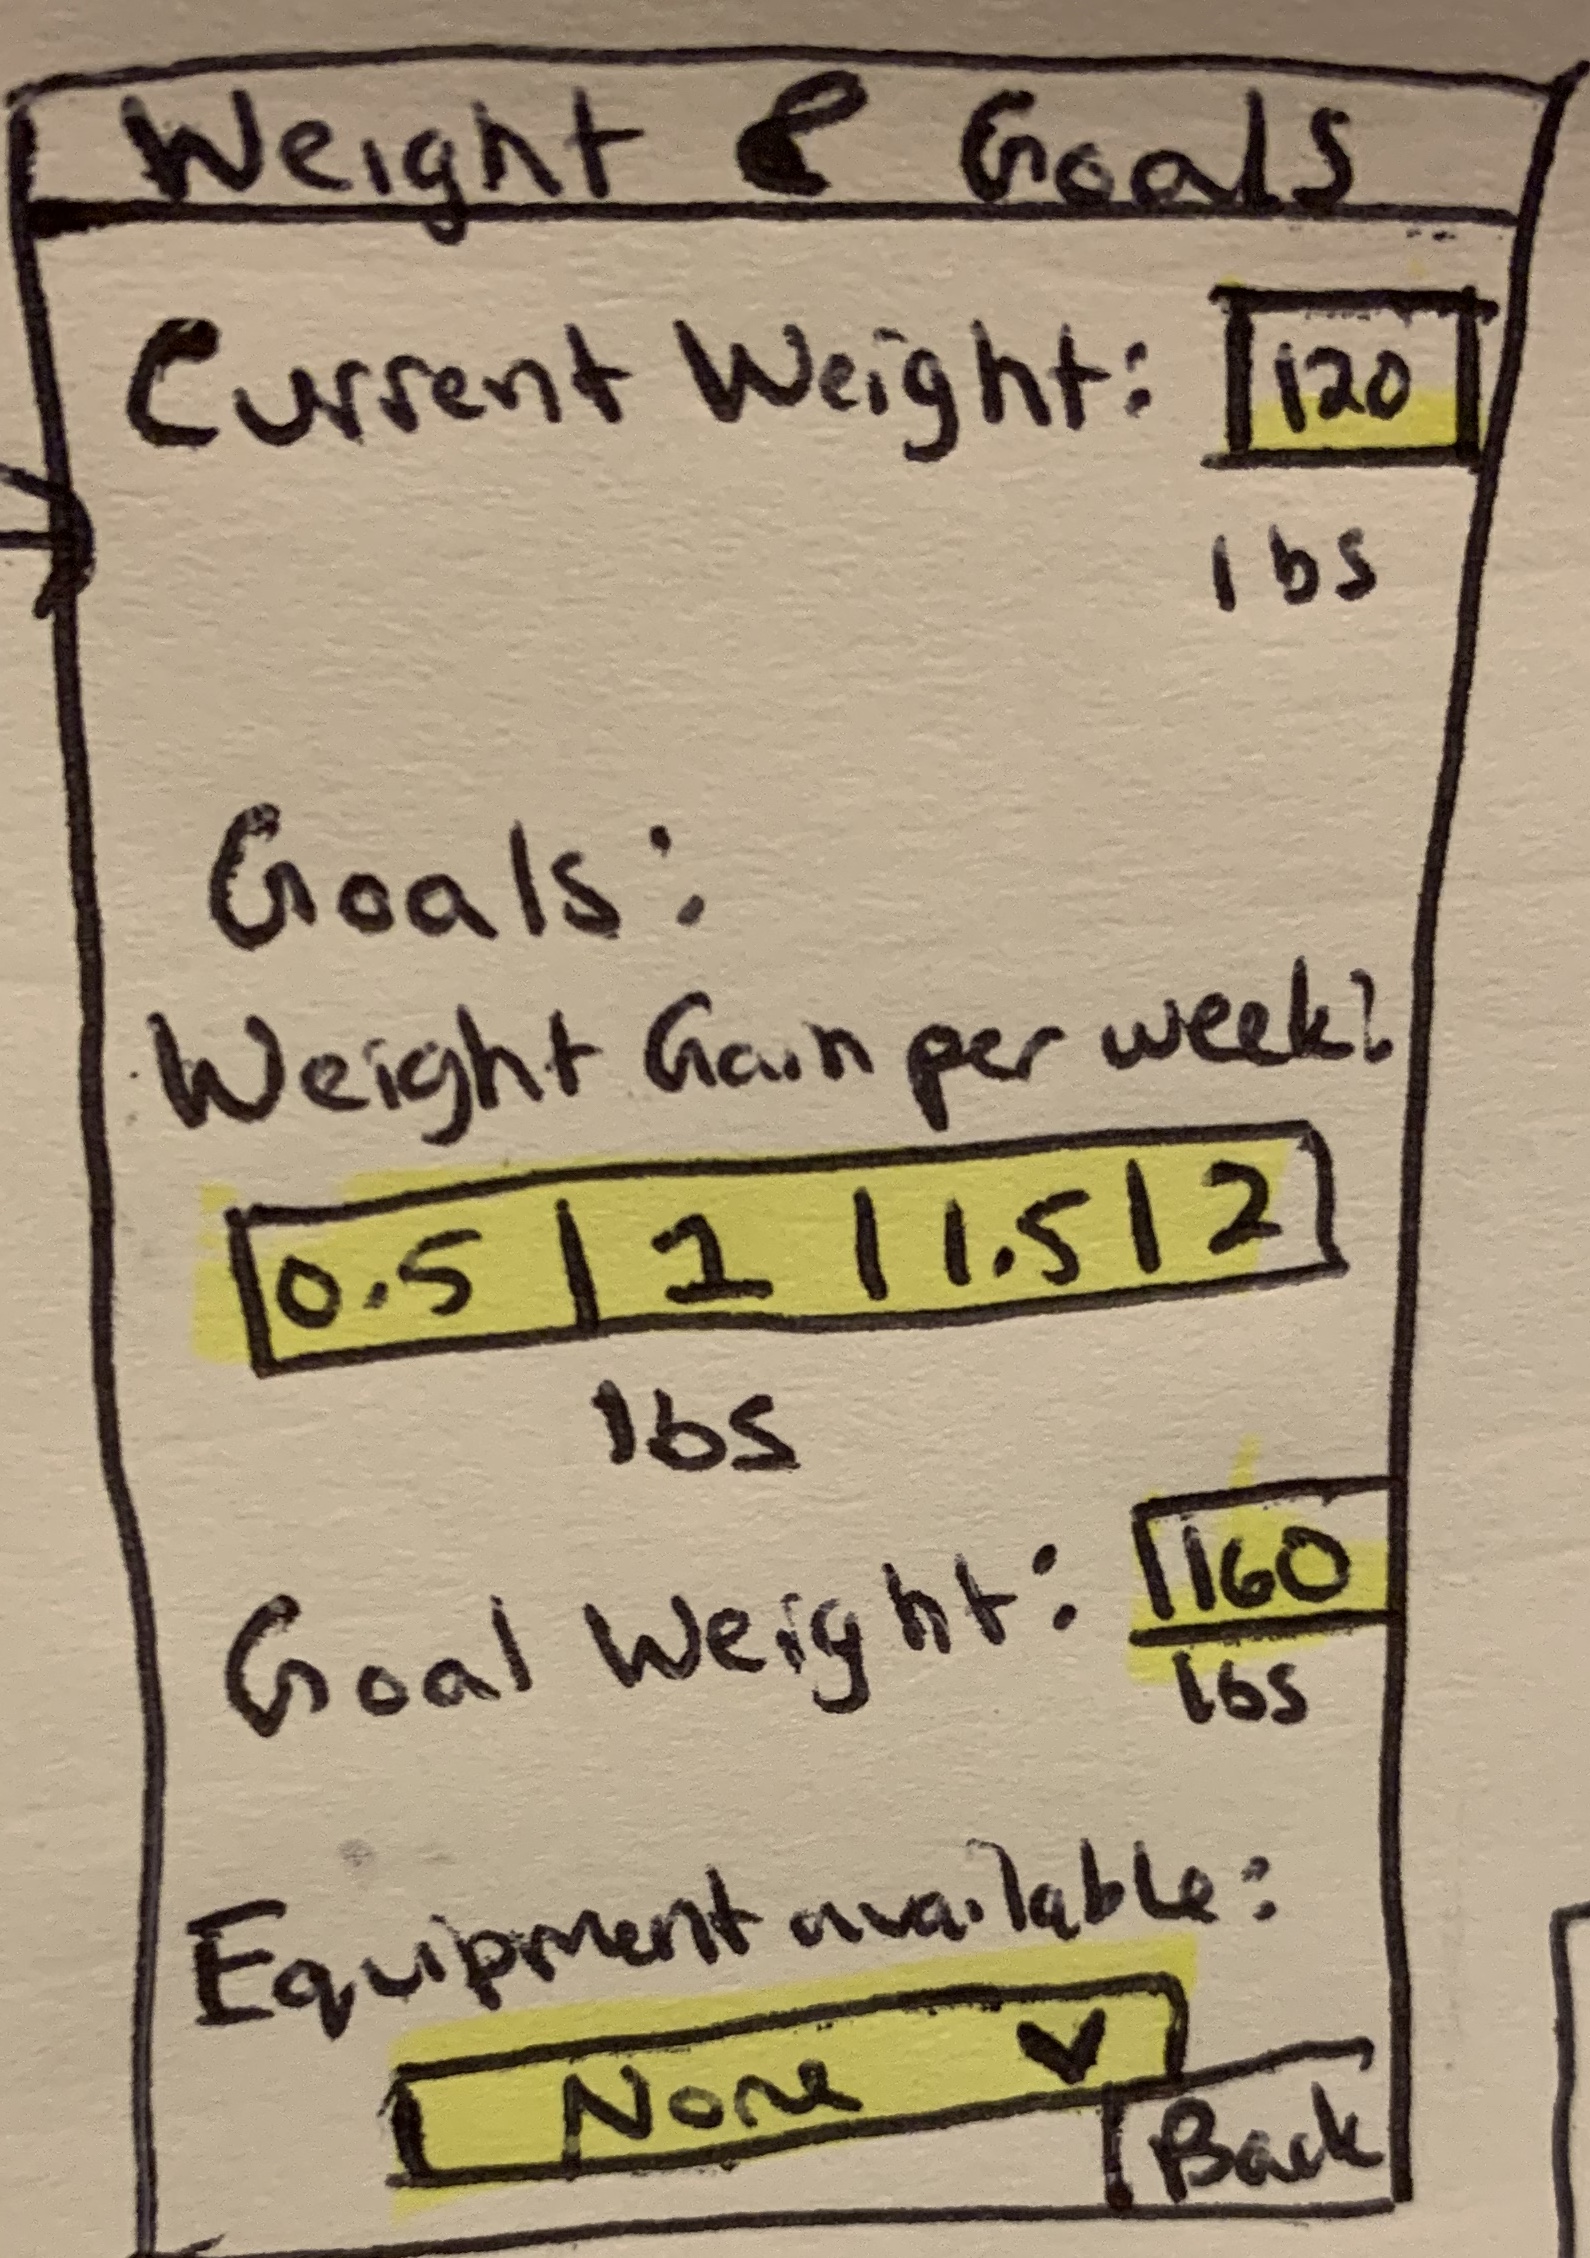 Weight & Goals
Current Weight: 120
lbs
Goals:
Weight Gain per week:
0.5 | 1 | 1.5 | 2
lbs
Goal Weight: 160
lbs
Equipment available:
None
Back